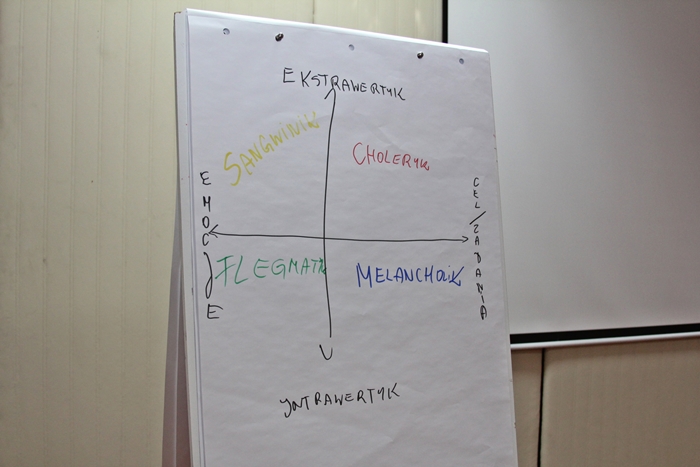 EKSTRAWERTYK
SANGWINIK
CHOLERYK
EMOCJE
CEL/ZADANIA
FLEGMATIK
MELANCHOLIK
YNTRAWERTYK